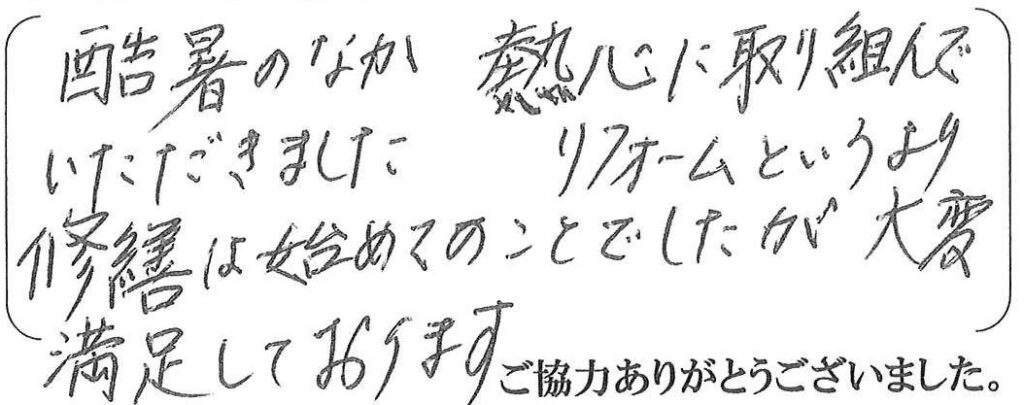 酷暑のなか 熱心に取り組んで
いただきました リフォームというより
修繕は始めてのことでしたが 大変
満足しております
ご協力ありがとうございました。